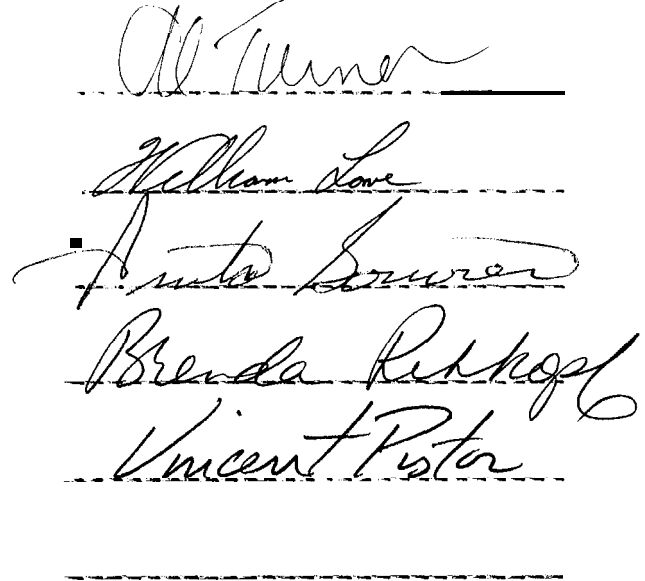 Al Turner
William Lowe
Anita
Brenda Rehkopf
Vincent Pistor